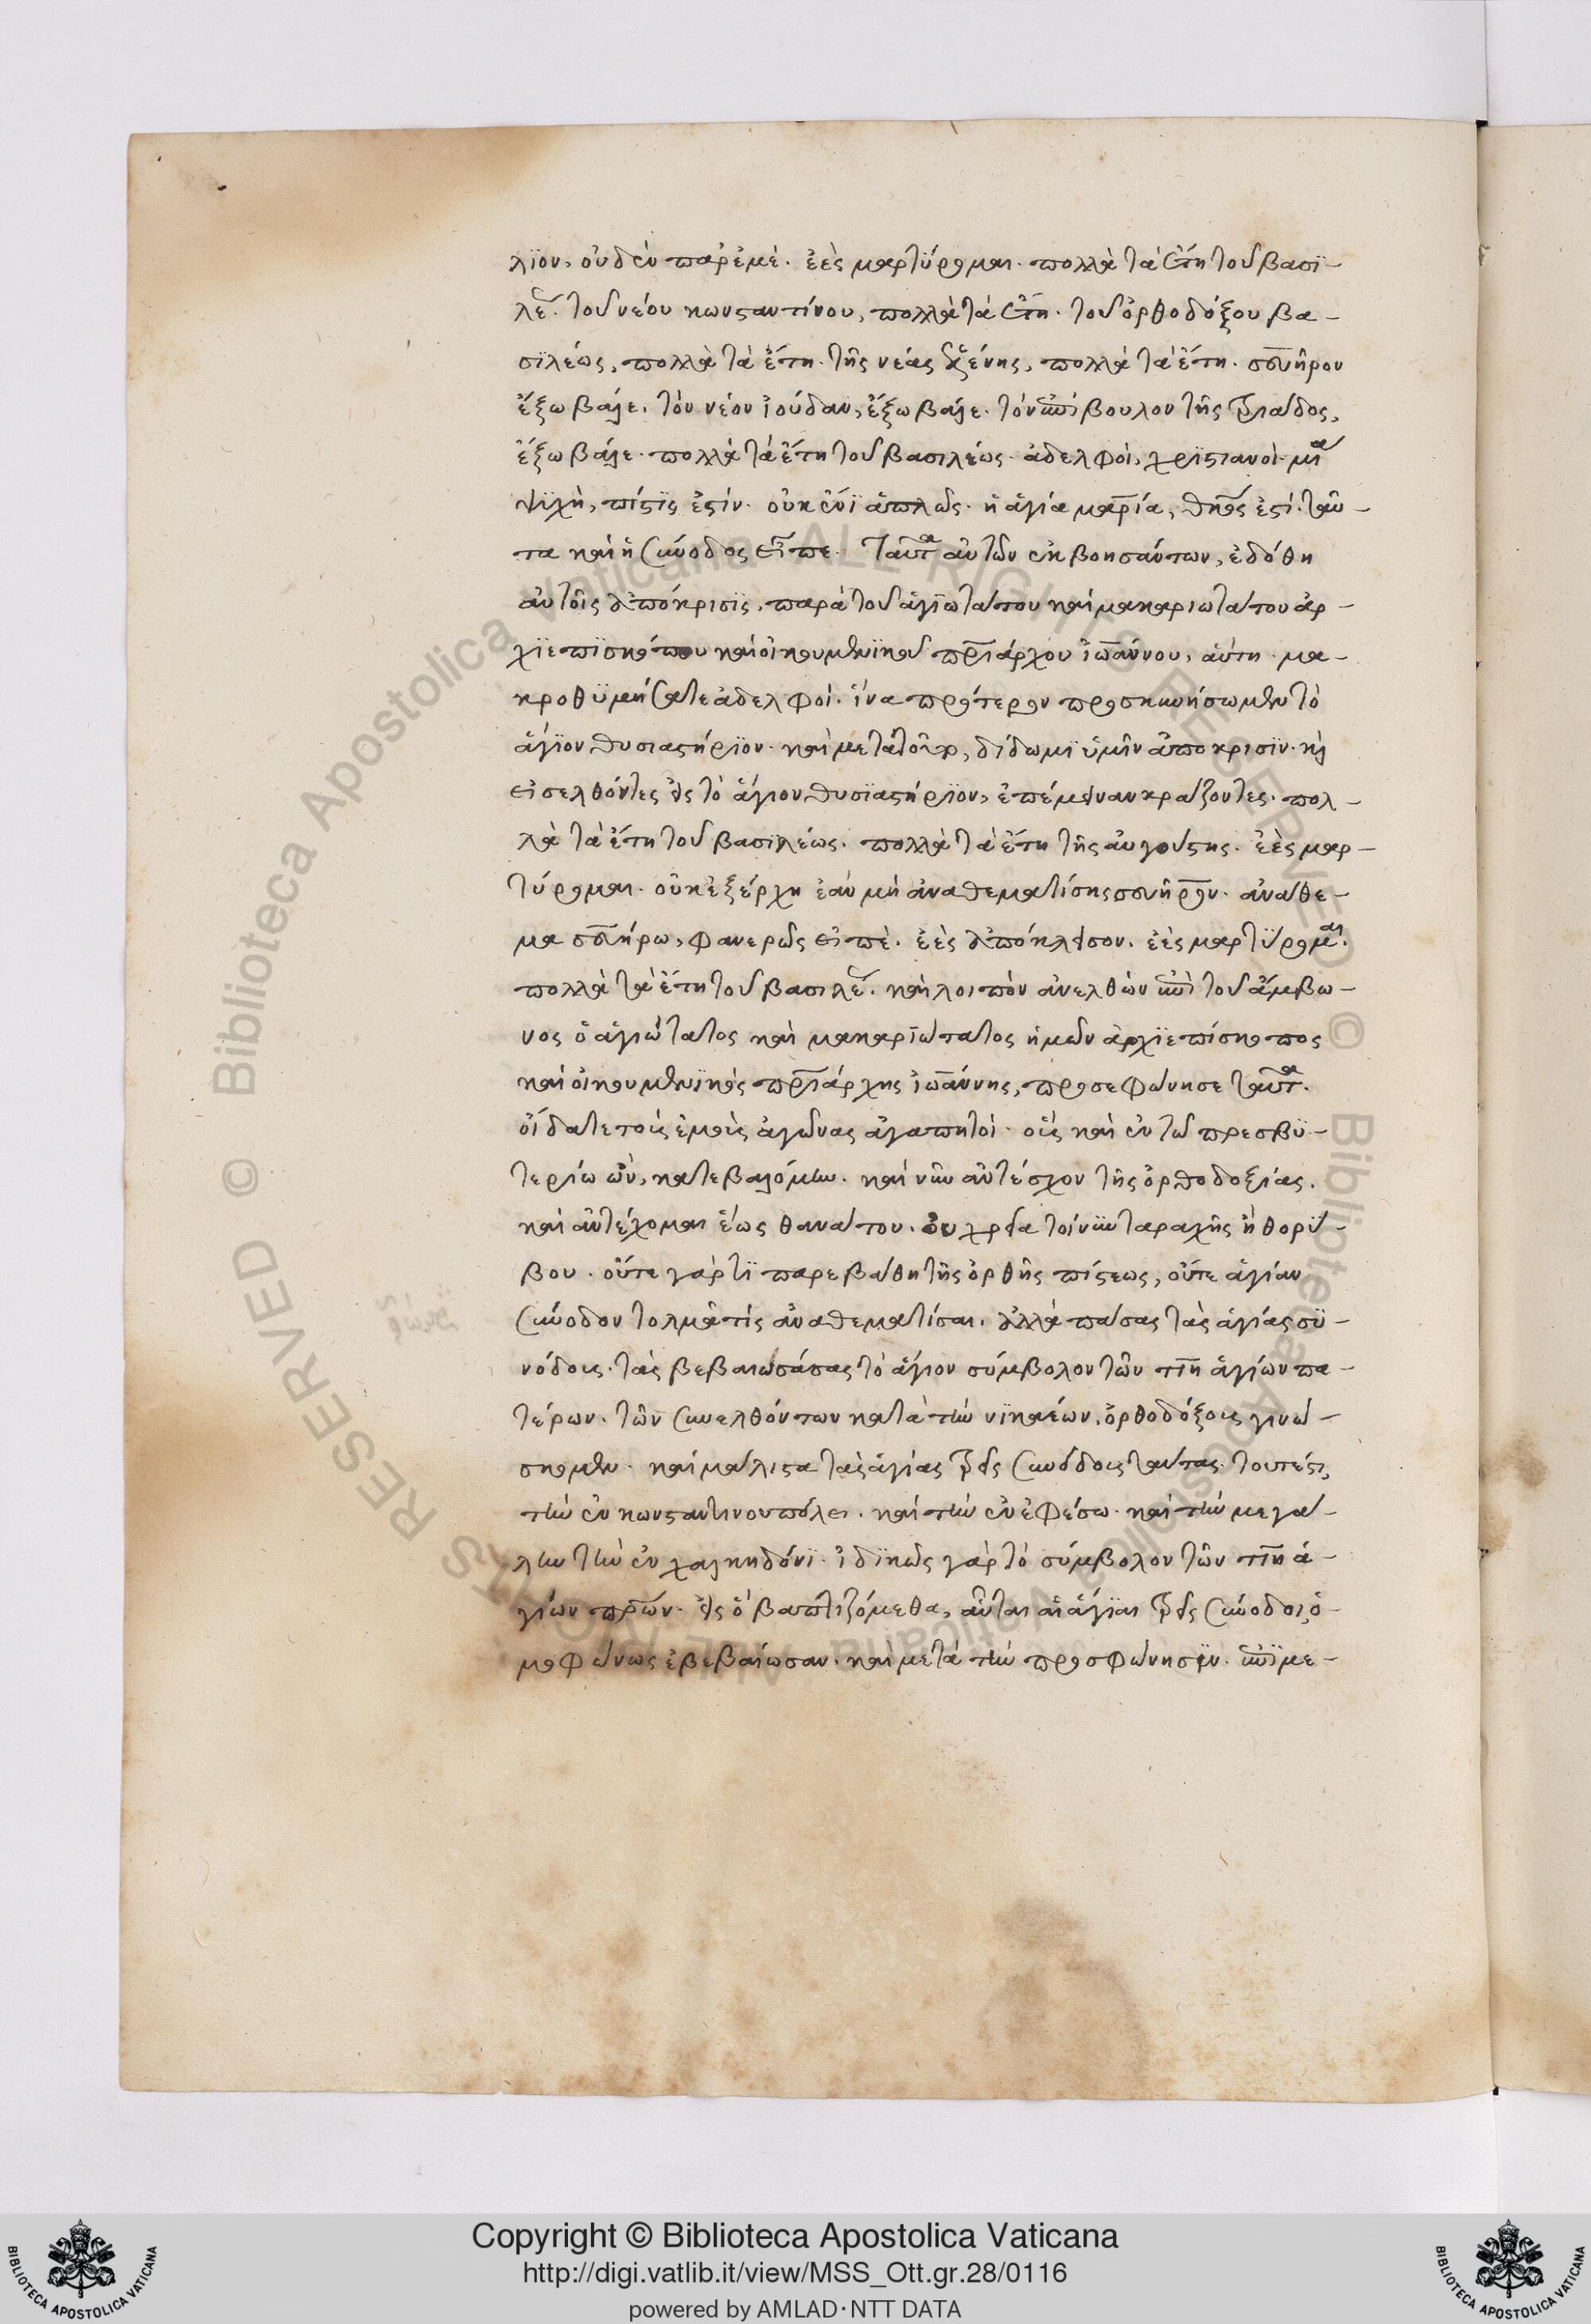 λϊον, οὐδὲν παρ' ἐμέ. ἐὲς μαρτΰρομαι. πολλὰ τὰ ἔτη τοῦ βασϊ-
λέ. τοῦ νέου κωνσταντίνου, πολλὰ τὰ ἔτη. τοῦ ὀρθοδόξου βα-
σϊλέως, πολλὰ τὰ ἔτη. τῆς νέας ἑλένης, πολλὰ τὰ ἔτη. σευῆρον
ἔξω βάλε. τὸν νέον ἰούδαν, ἔξω βάλε. τὸν ἐπίβουλον τῆς τριάδος,
ἔξω βάλε. πολλὰ τὰ ἔτη τοῦ βασιλέως. ἀδελφοὶ, χρϊστιανοὶ. μία
ψϊχὴ, πίστϊς ἐστίν. οὐκ ἔνϊ ἁπλῶς. ἡ ἁγία μαρία, θκος ἐστί. ταῦ-
τα καὶ ἡ σύνοδος εἶπε. Ταῦτα αὐτῶν ἐκβοησάντων, ἐδόθη
αὐτοῖς ἀπόκρισϊς, παρὰ τοῦ ἁγϊωτάτου καὶ μακαριωτάτου ἀρ-
χϊεπϊσκόπου καὶ οἰκουμενϊκοῦ πριάρχου ἰωάννου, αὕτη. μα-
κροθϋμήσατε ἀδελφοί. ἵνα πρότερον προσκυνήσωμεν τὸ
ἅγϊον θυσιαστήρϊον. καὶ μετὰ τοῦτο, δίδωμϊ ὑμῖν ἀπόκρισϊν. καὶ
εἰσελθόντες εἰς τὸ ἅγιον θυσϊαστήρϊον, ἐπέμειναν κράζοντες. πολ-
λὰ τὰ ἔτη τοῦ βασιλέως. πολλὰ τὰ ἔτη τῆς αὐγούστης. ἐὲς μαρ-
τύρομαι. οὐκ ἐξέρχη ἐὰν μὴ ἀναθεματίσης σευῆρον. ἀνάθε-
μα σευήρω, φανερῶς εἰπέ. ἐὲς ἀπόκλεισον. ἐὲς μαρτΰρομαι.
πολλὰ τὰ ἔτη τοῦ βασιλέ. καὶ λοιπὸν ἀνελθὼν ἐπὶ τοῦ ἄμβω-
νος ὁ ἁγιώτατος καὶ μακαρϊώτατος ἡμῶν ἀρχϊεπίσκοπος
καὶ οἰκουμενϊκὸς πριάρχης ἰωάννης, προσεφώνησε ταῦτα.
οἴδατε τοὺς ἐμοὺς ἀγῶνας ἀγαπητοί. οὓς καὶ ἐν τῶ πρεσβϋ-
τερίω ὢν, κατεβαλόμην. καὶ νῦν ἀντέσχον τῆς ὀρθοδοξίας.
καὶ ἀντέχομαι ἕως θανάτου. οὐ χρεία τοίνυν ταραχῆς ἢ θορΰ-
βου. οὔτε γάρ τϊ παρεβάθη τῆς ὀρθῆς πίστεως, οὔτε ἁγίαν
σύνοδον τολμᾶ τίς ἀναθεματίσαι. ἀλλὰ πάσας τὰς ἁγίας σϋ-
νόδους. τὰς βεβαιωσάσας τὸ ἅγιον σύμβολον τῶν τιη ἁγίων πα-
τέρων. τῶν συνελθόντων κατὰ τὴν νϊκαέων, ὀρθοδόξους γινώ-
σκομεν. καὶ μάλιστα τὰς ἁγίας τρεῖς συνόδους ταύτας. τουτέστι,
τὴν ἐν κωνσταντινουπόλει. καὶ τὴν ἐν ἐφέσω. καὶ τὴν μεγά-
λην τὴν ἐν χαλκηδόνϊ. ἰδϊκῶς γὰρ τὸ σύμβολον τῶν τιη ἁ-
γίων πρων. εἰς ὃ βαπτιζόμεθα, αὗται αἱ ἅγϊαι τρεῖς σύνοδοι, ὁ-
μοφώνως ἐβεβαίωσαν. καὶ μετὰ τὴν προσφώνησϊν. ἐπϊμε-
Copyright © Biblioteca Apostolica Vaticana
http://digi.vatlib.it/view/MSS_Ott.gr.28/0116
powered by AMLAD·NTT DATA
BIBLIOTECA APOSTOLICA VATICANA
BIBLIOTECA APOSTOLICA VATICANA